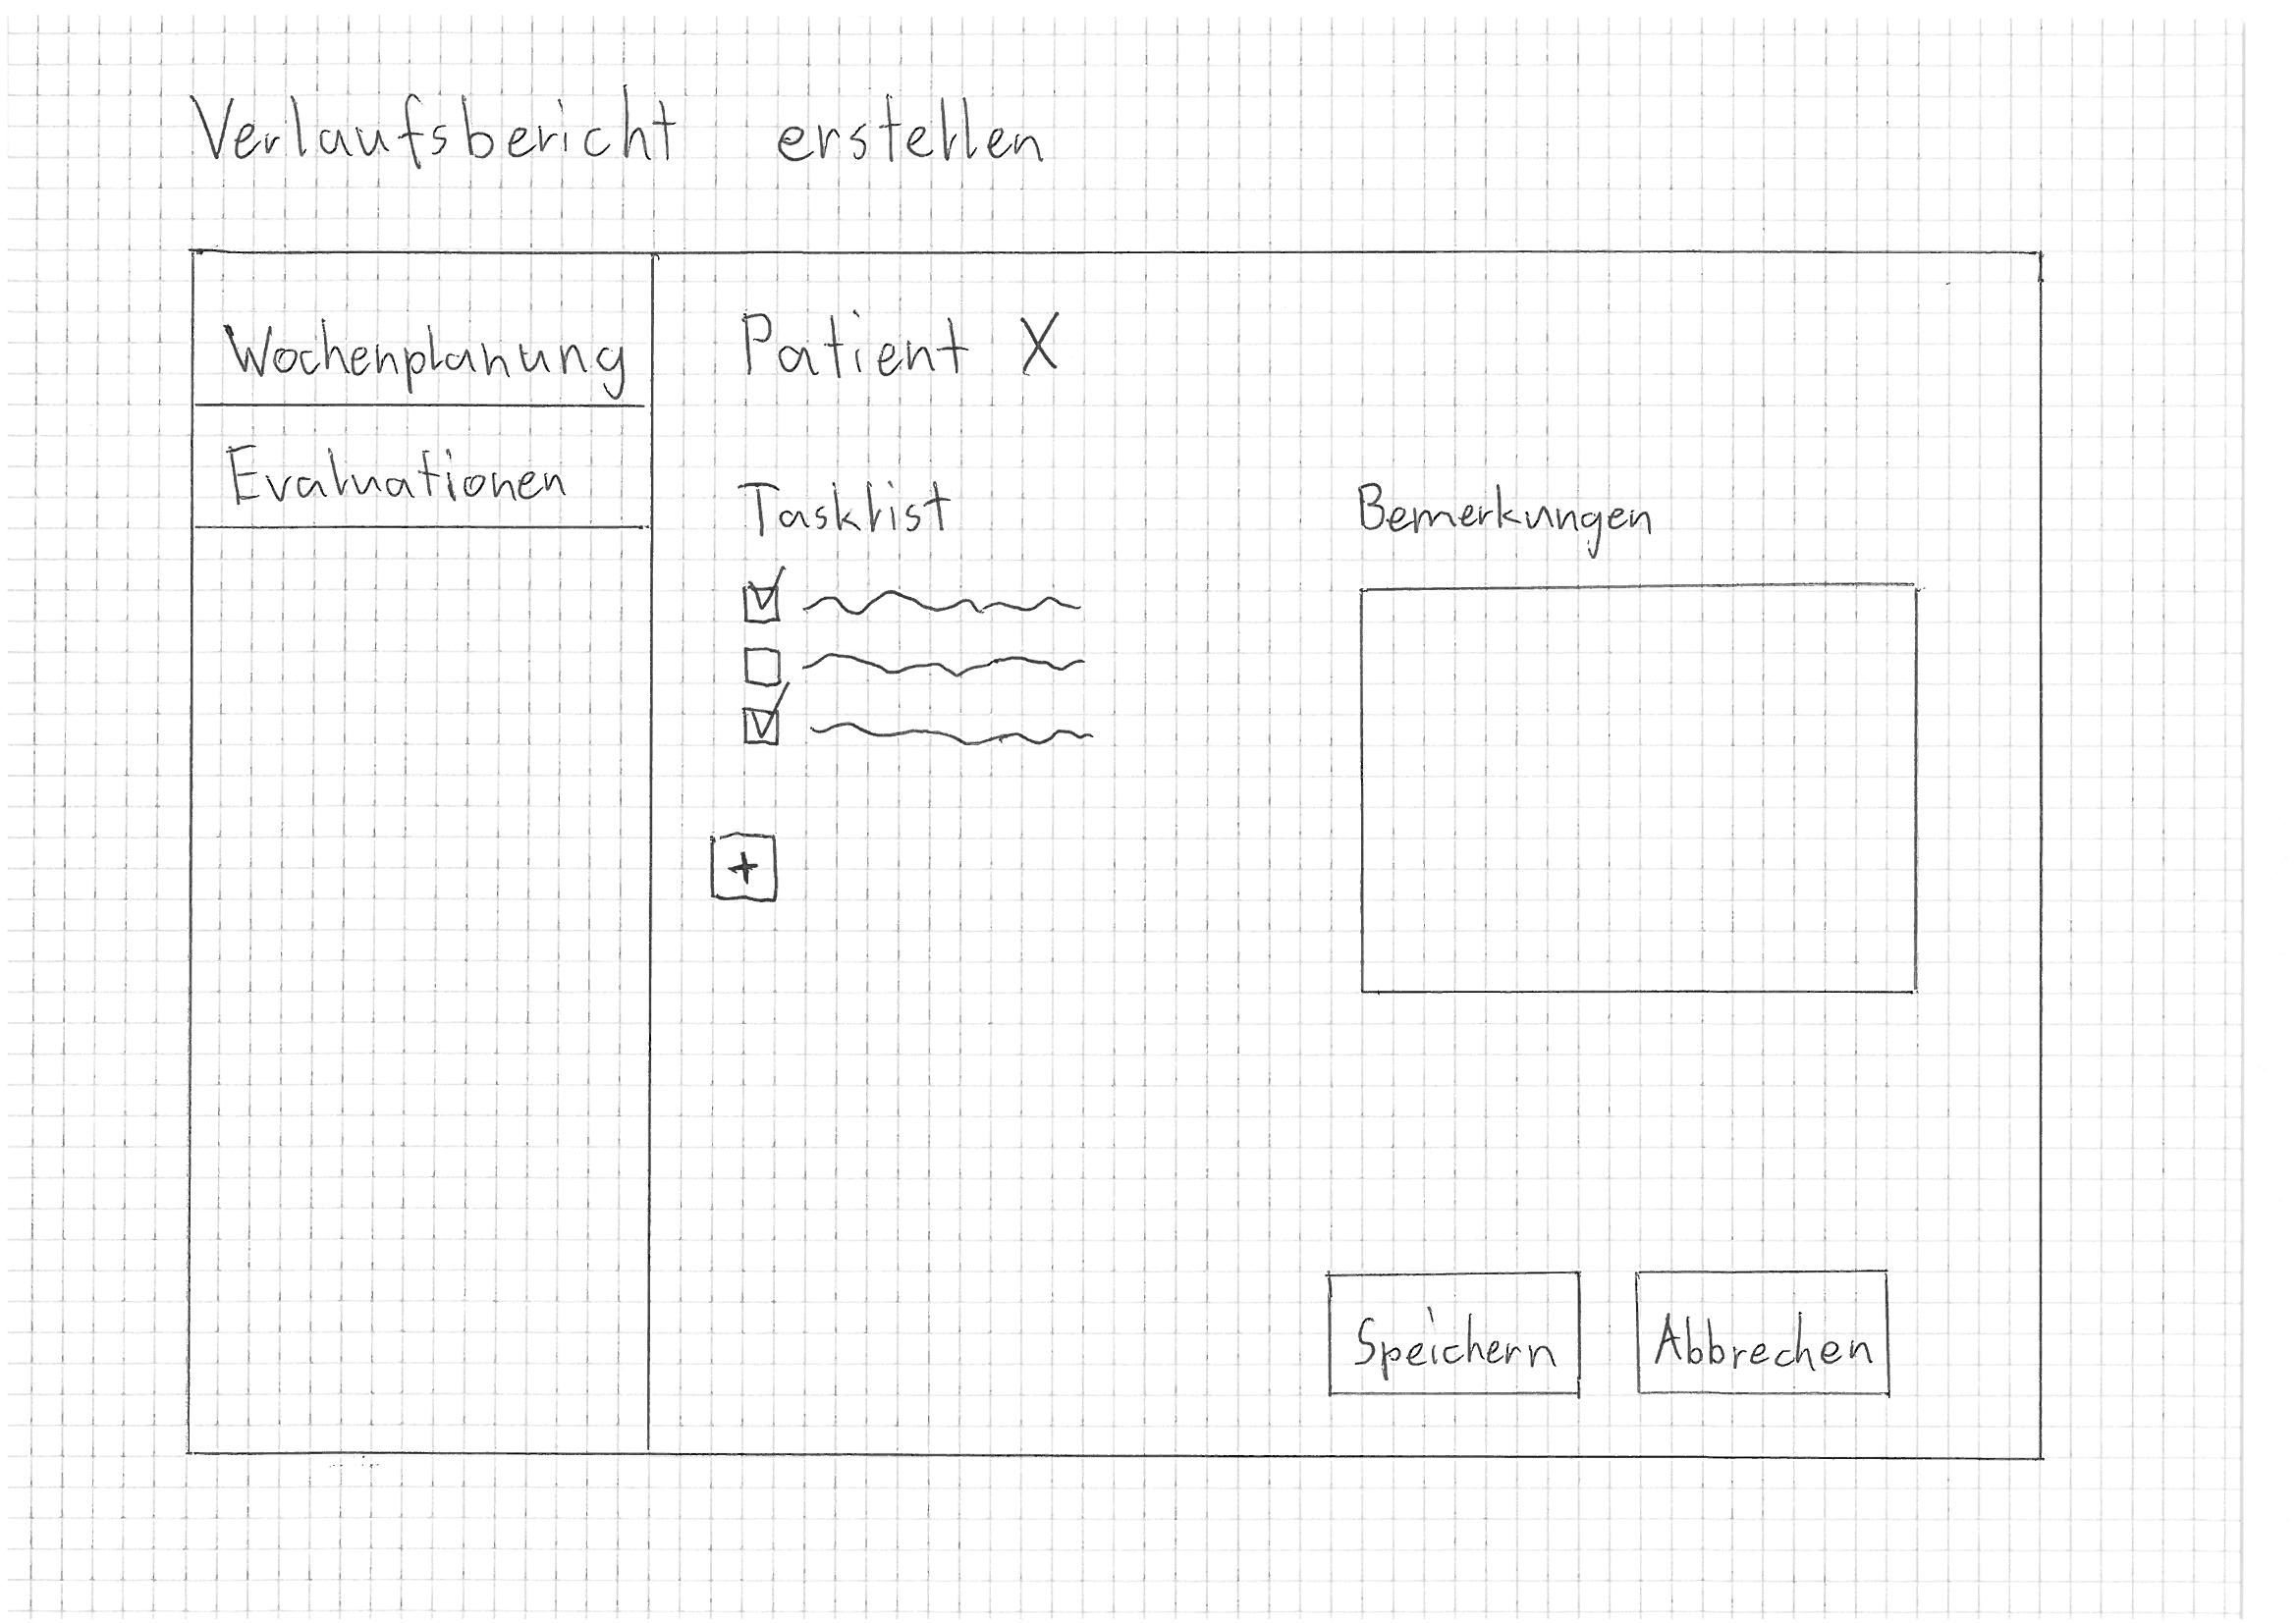 Verlaufsbericht erstellen
Wochenplanung
Evaluationen
Patient X
Tasklist
+
Bemerkungen
Speichern
Abbrechen